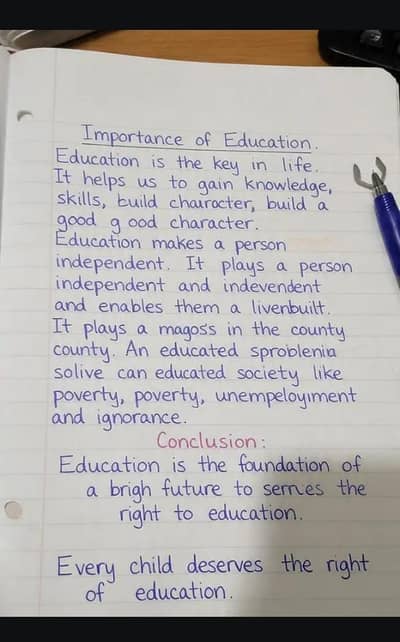 Importance of Education.
Education is the key in life.
It helps us to gain knowledge,
skills, build character, build a
good g ood character.
Education makes a person
independent. It plays a person
independent and indevendent
and enables them a livenbuilt.
It plays a magoss in the county
county. An educated sproblenia
solive can educated society like
poverty, poverty, unempeloyiment
and ignorance.
Conclusion:
Education is the foundation of
a brigh future to serres the
right to education.
Every child deserves the right
of education.